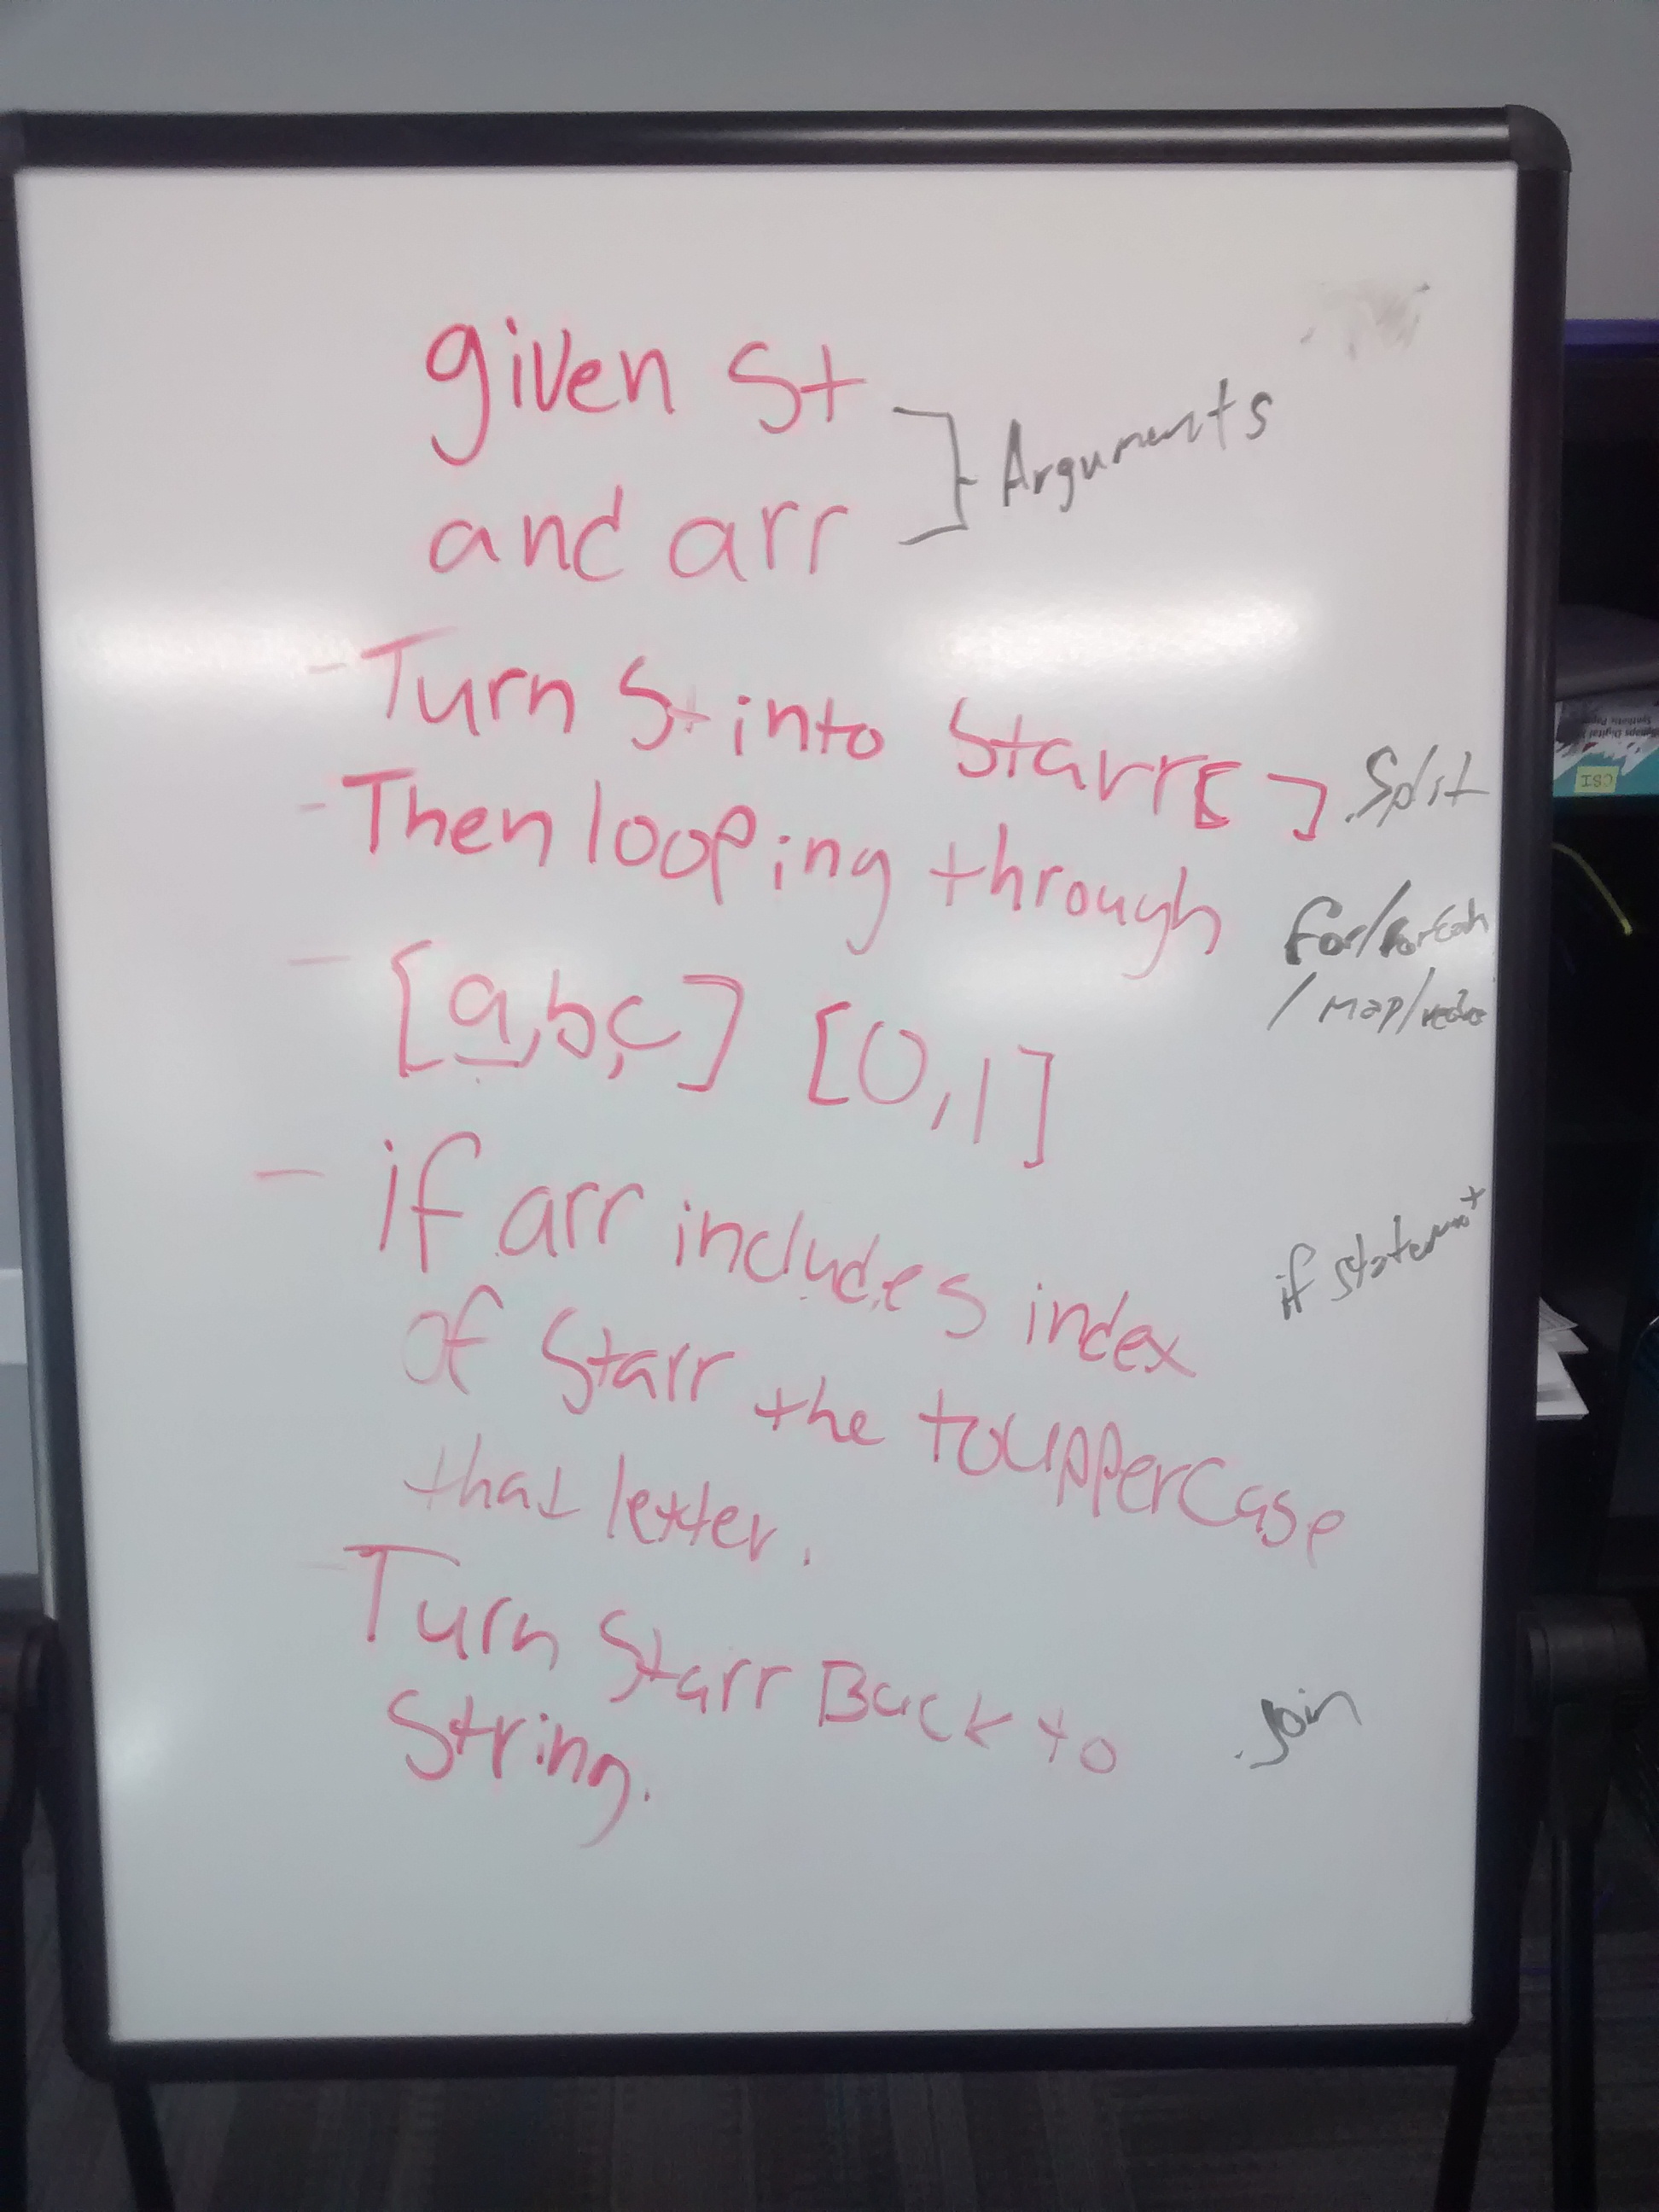 given St
and arr
Arguments
- Turn St into Starr[ ]
.Split
- Then looping through
for/forEach
/ map/reduce
- [a,b,c] [0,1]
- if arr includes index
if statement
of Starr the toUpperCase
that letter.
- Turn Starr Back to
.join
String.
CSI